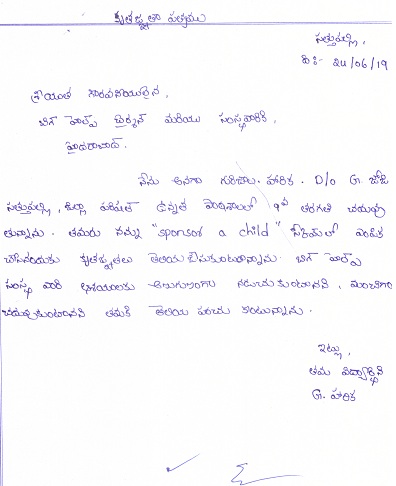 కృతజ్ఞతా పత్రము
సత్తుపల్లి,
ది:- 24/06/19
శ్రీయుత గౌరవనీయులైన,
బిగ్ హెల్ప్ ఛైర్మన్ మరియు సంస్థవారికి,
హైదరాబాద్.
నేను అనగా గురిజాల. హారిక. D/o G. జోజి
సత్తుపల్లి, జిల్లా పరిషత్ ఉన్నత పాఠశాలలో 9వ తరగతి చదువు
తున్నాను. తమరు నన్ను "sponsor a child" స్కీమ్‌లో ఎంపిక
చేసినందుకు కృతజ్ఞతలు తెలియ చేసుకుంటున్నాను. బిగ్ హెల్ప్
సంస్థ వారి ఆశయాలకు అనుగుణంగా నడుచుకుంటానని, మంచిగా
చదువుకుంటానని తమకి తెలియ పరుచుకుంటున్నాను.
ఇట్లు,
తమ విద్యార్థిని
G. హారిక